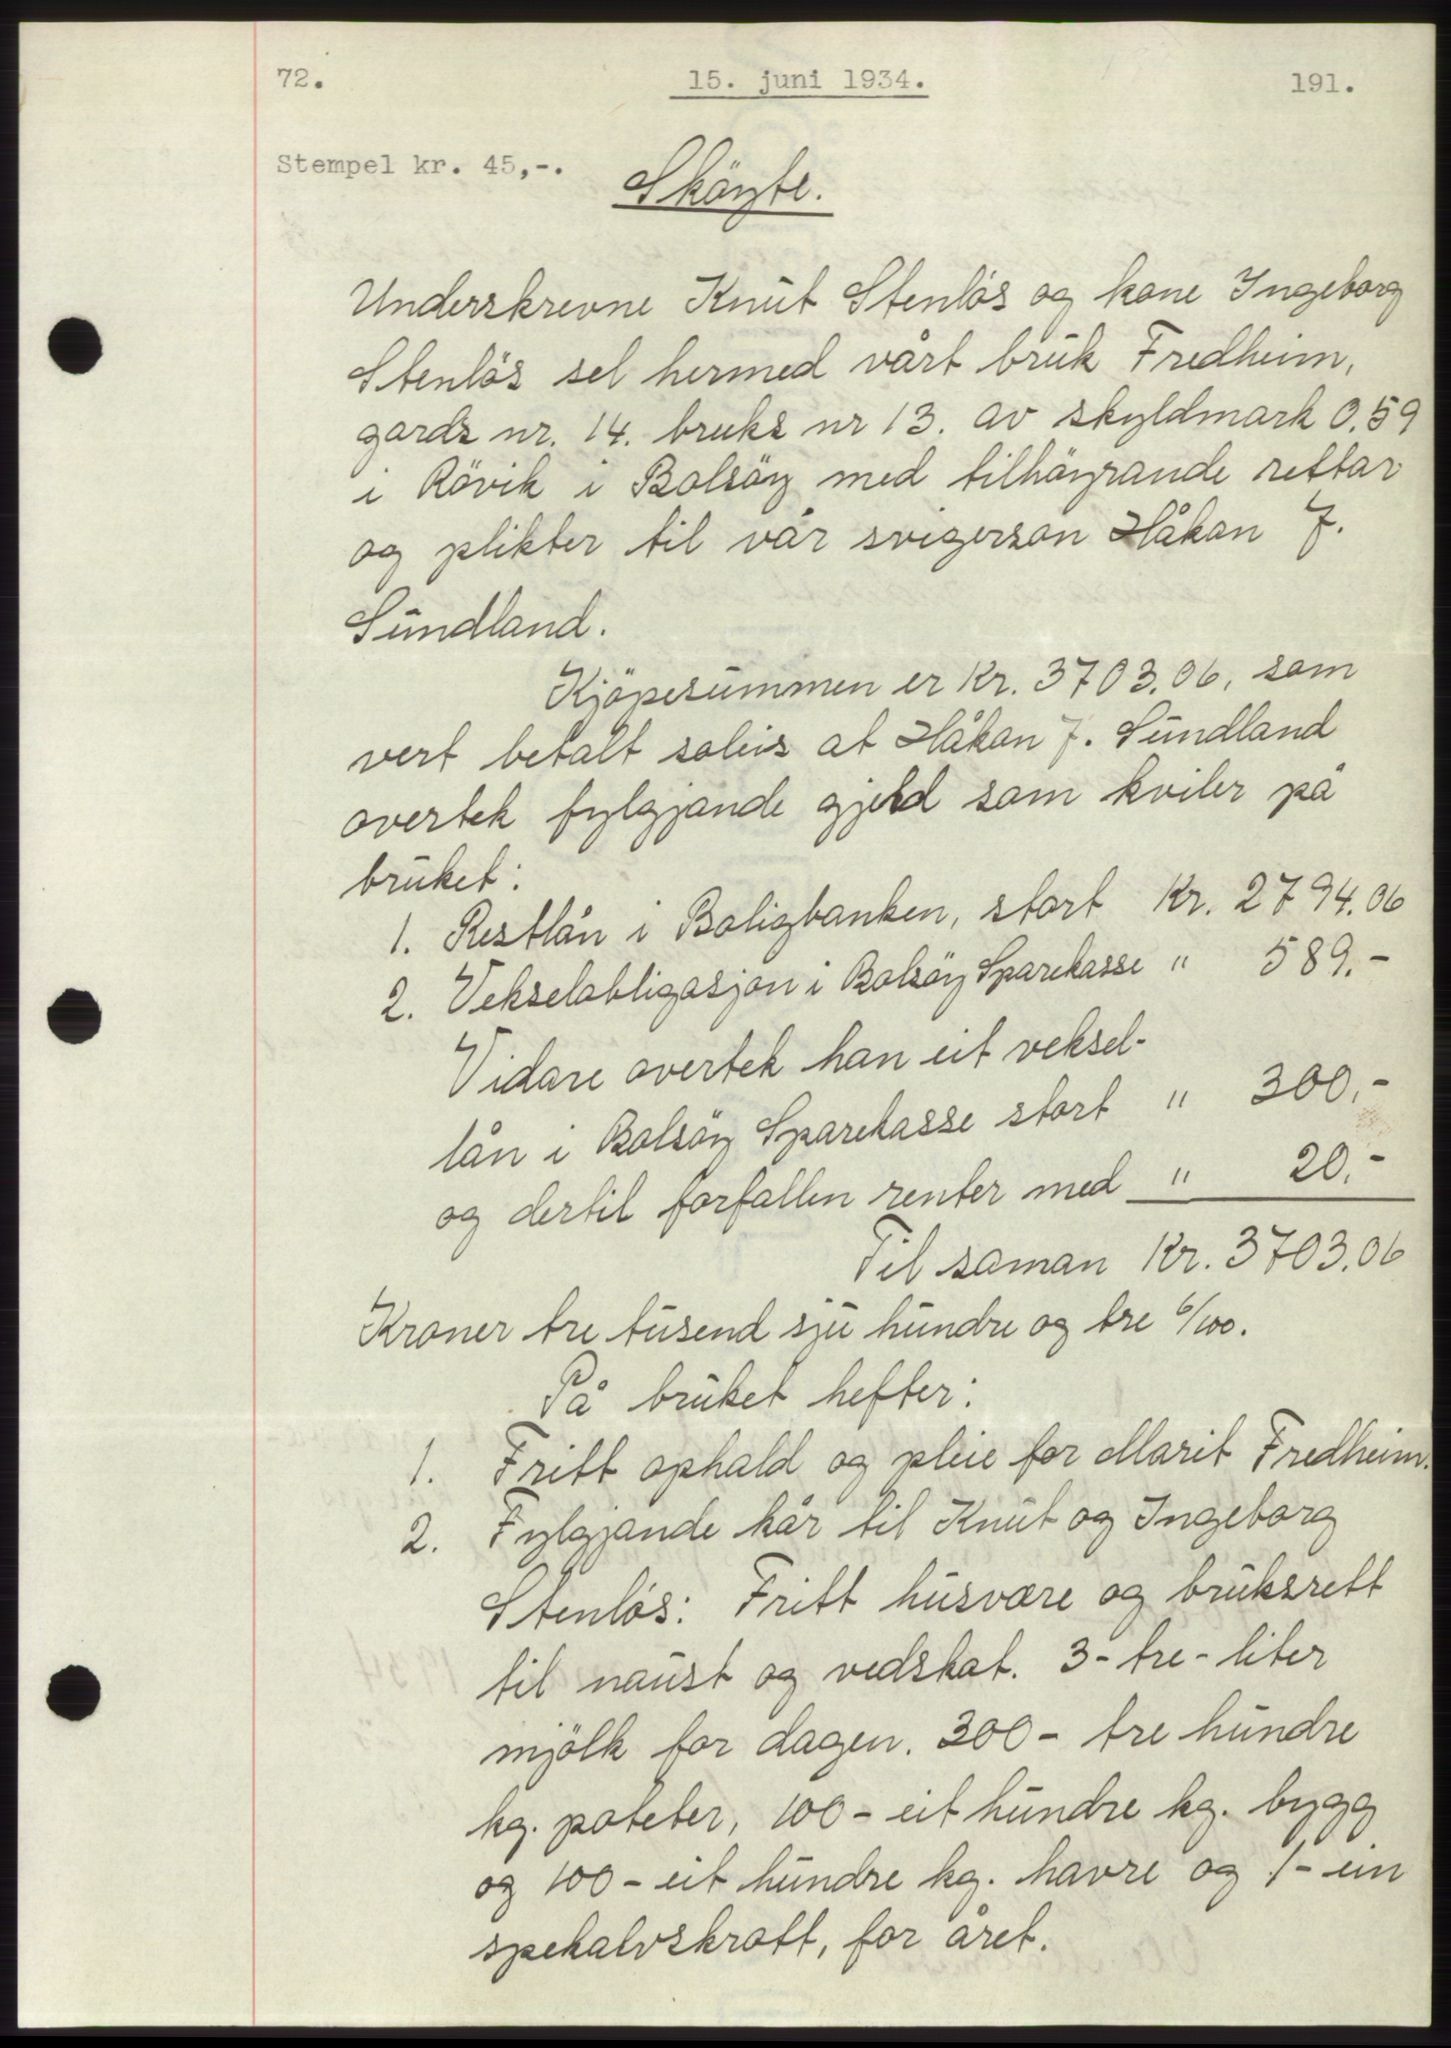 72.
15. juni 1934.
191.
Stempel kr. 45,-.
Sköyte.
Underskrevne Knut Stenlös og kone Ingeborg
Stenlös sel hermed vårt bruk Fredheim,
gards nr. 14. bruks nr 13. av skyldmark 0.59
i Rövik i Bolsöy med tilhöyrande rettar
og plikter til vår svigerson Håkon J.
Sundland.
Kjöpesummen er Kr. 3703.06, som
vert betalt soleis at Håkon J. Sundland
overtek fylgjande gjeld som kviler på
bruket:
1. Restlån i Boligbanken, stort Kr. 2794.06
2. Vekselobligasjon i Bolsöy Sparekasse " 589.-
Vidare overtek han eit veksel-
lån i Bolsöy Sparekasse stort " 300.-
og dertil forfallen renter med " 20.-
Til saman Kr. 3703.06
Kroner tre tusend sju hundre og tre 6/100.
På bruket hefter:
1. Fritt ophald og pleie for Marit Fredheim.
2. Fylgjande kår til Knut og Ingeborg
Stenlös: Fritt husvære og bruksrett
til naust og vedskot. 3- tre - liter
mjölk for dagen. 300 - tre hundre
kg. poteter, 100 - eit hundre kg. bygg
og 100 - eit hundre kg. havre og 1 - ein
spekalvskrott, for året.